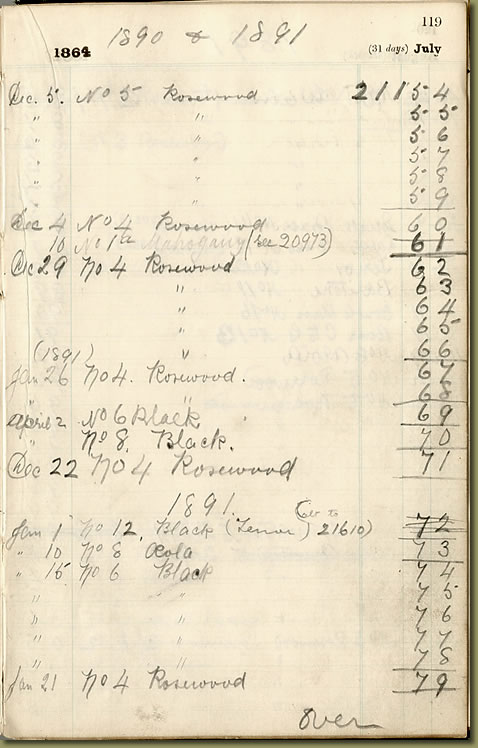 119
1864 1890 & 1891 (31 days) July
Dec. 5. No 5 Rosewood 21154
" " 55
" " 56
" " 57
" " 58
" " 59
Dec 4 No 4 Rosewood 60
10 No 1a Mahogany (See 20973) 61
Dec 29 No 4 Rosewood 62
" 63
" 64
" 65
" 66
(1891)
Jan 26 No 4. Rosewood. 67
" 68
April 2 No 6 Black 69
" No 8. Black. 70
Dec 22 No 4 Rosewood 71
1891.
Jan 1 No 12. Black (Tenor) 21610) 72
" 10 No 8 73
" 15 No 6 Black 74
" " 75
" " 76
" " 77
" " 78
Jan 21 No 4 Rosewood 79
Over